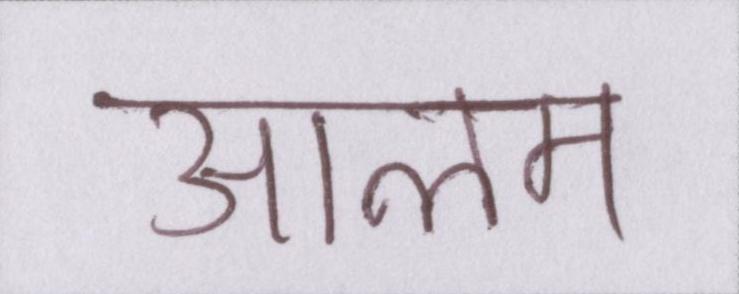 आलम